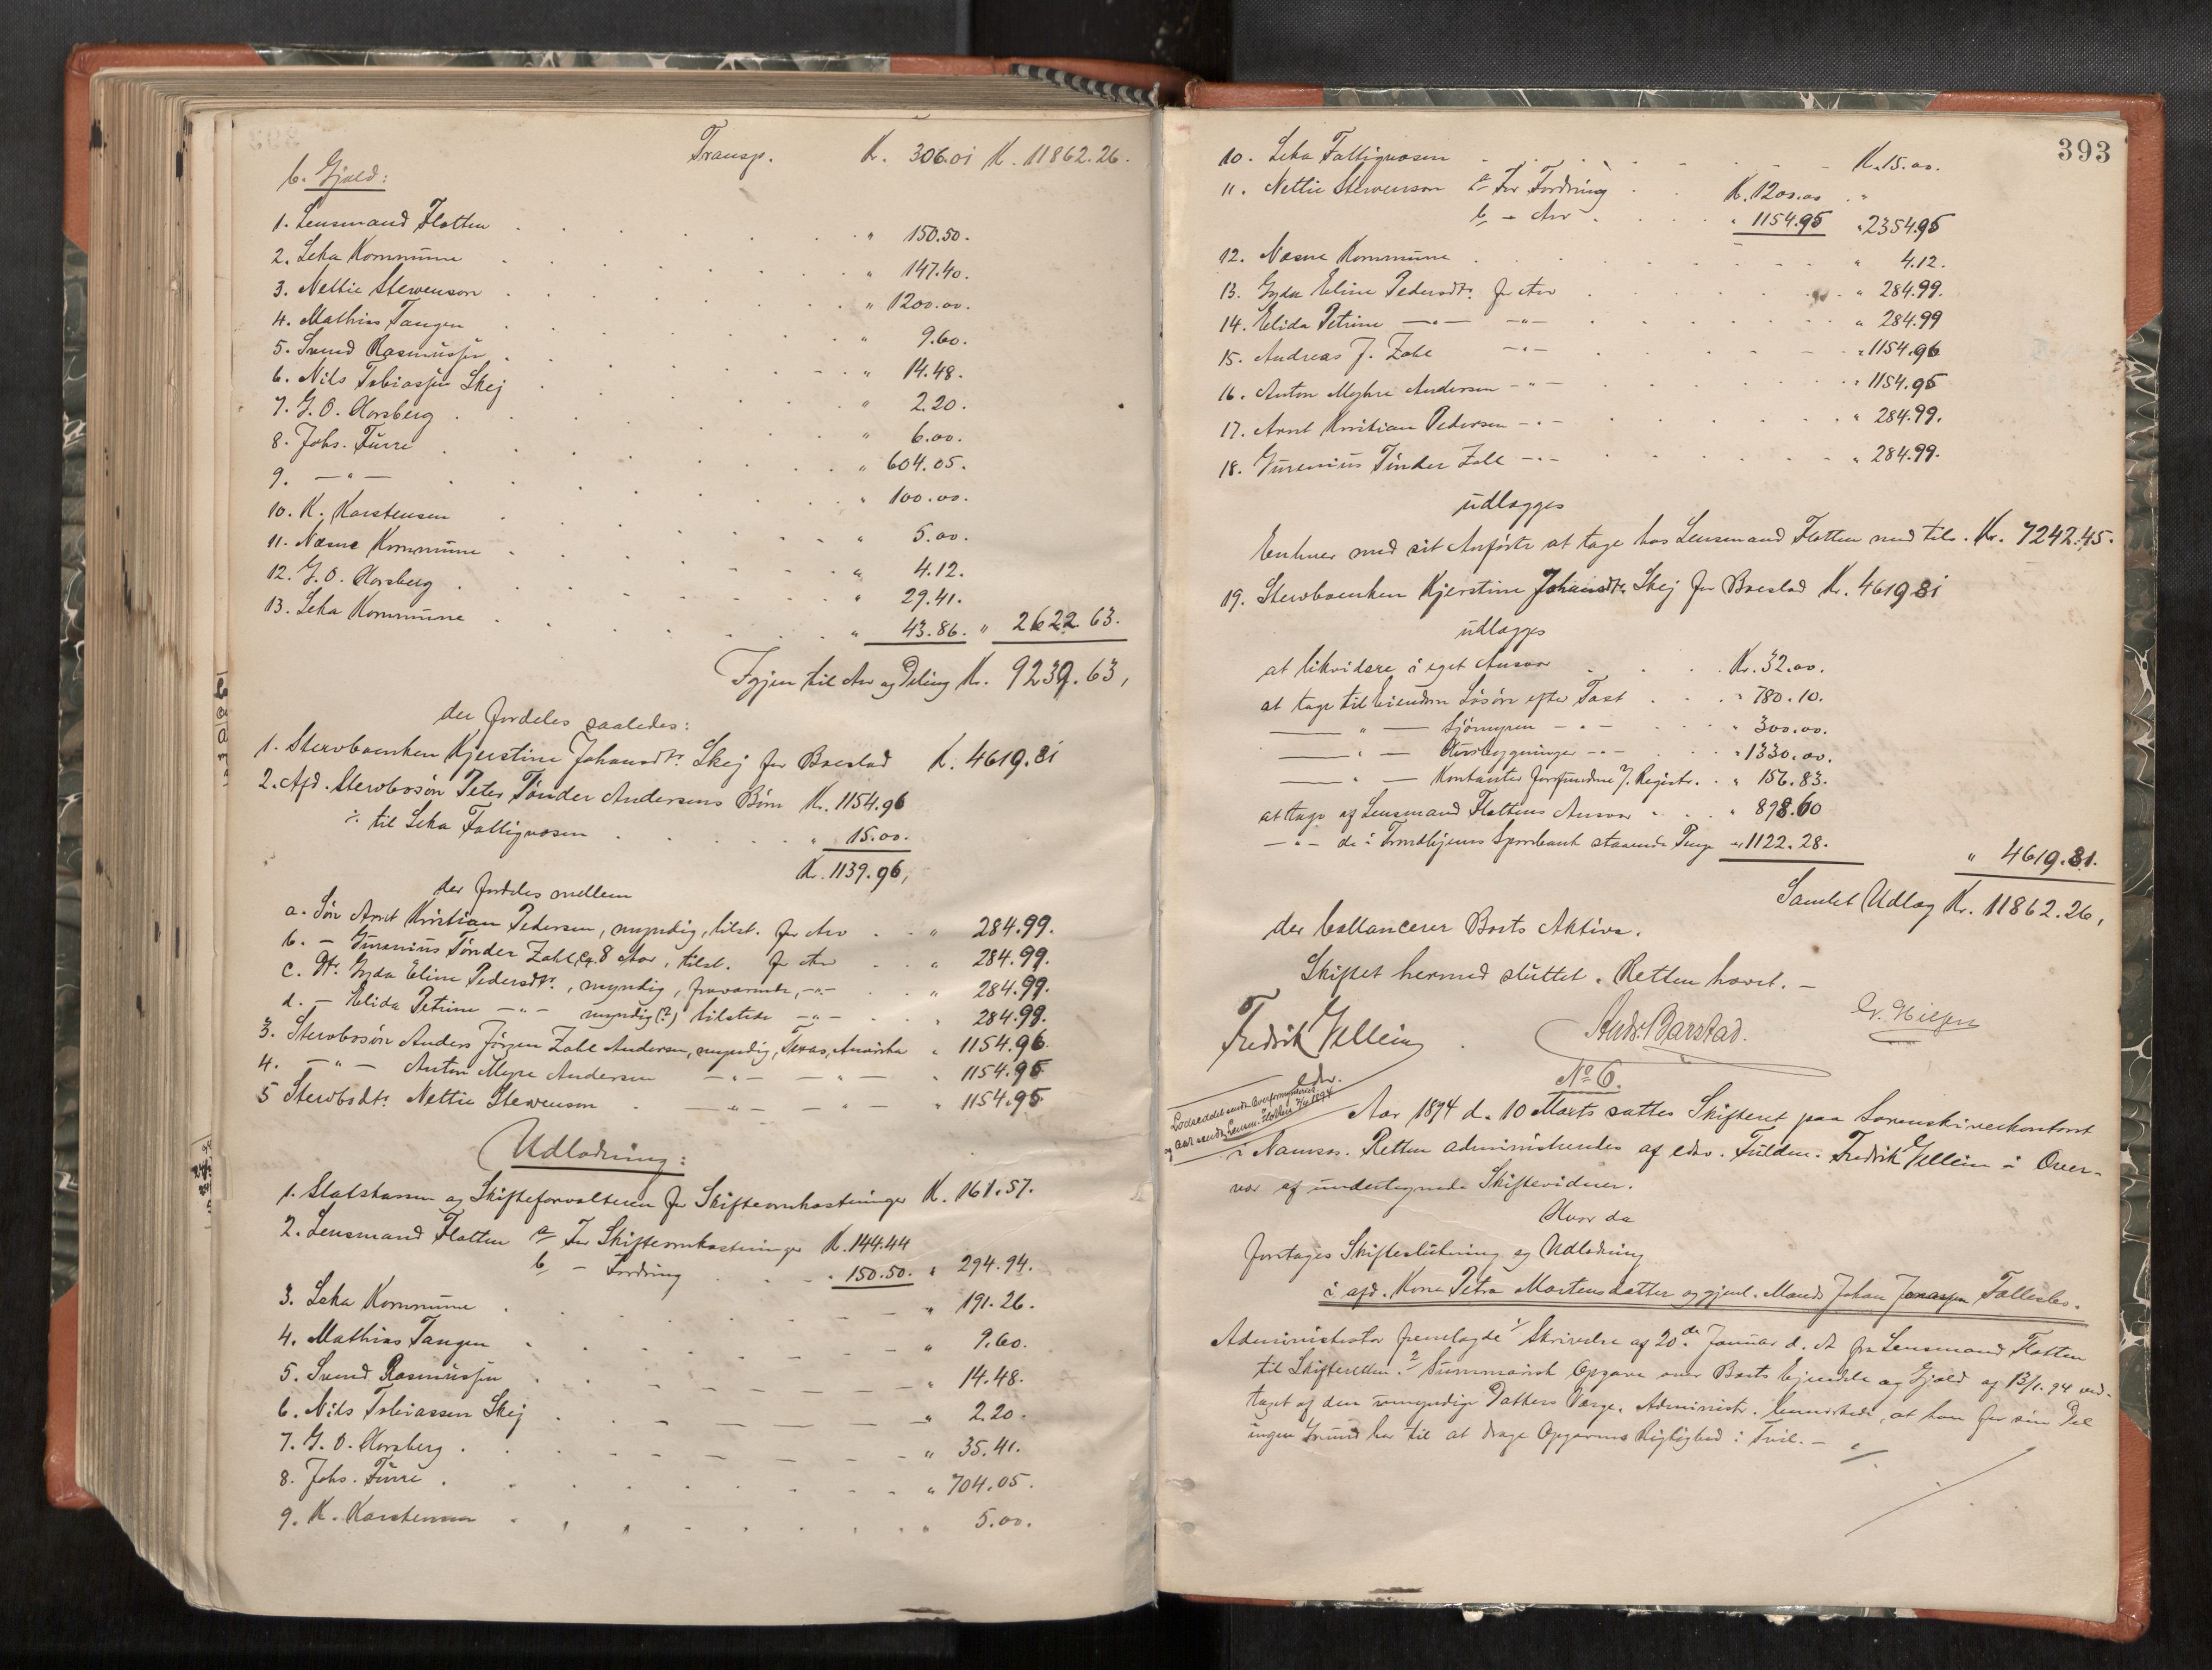 Transp. K. 306.01 K. 11862.26.
b. Gjæld:
1. Lensmand Flotten . . . " 150.50.
2. Leka Kommune . . . " 147.40.
3. Nettie Stewenson . . . " 1200.00.
4. Mathias Tangen . . . " 9.60.
5. Svend Rasmussen . . . " 14.48.
6. Nils Tobiassen Skej . . . " 2.20.
7. J. O. Horsberg . . . " 6.00.
8. Johs. Furre . . . " 604.05.
9. — " — . . . " 100.00.
10. K. Karstensen . . . " 5.00.
11. Næsne Kommune . . . " 4.12.
12. J. O. Horsberg . . . " 29.41.
13. Leka Kommune . . . " 43.86. " 2622.63.
Igjen til Arv og Deling K. 9239.63,
der fordeles saaledes:
1. Stervboenken Kjerstine Johansdtr. Skej for Boeslod K. 4619.81
2. Afd. Stervbosön Peter Tönder Andersens Börn K. 1154.96
÷ til Leka Fattigvæsen . . . " 15.00.
Kr. 1139.96,
der fordeles mellem
a. Sön Arnt Kristian Pedersen, myndig, tilst. for Arv . . " 284.99.
b. — Gurenius Tönder Zahl, 8 Aar, tilst. for Arv . . " 284.99.
c. Dtr. Gyda Eline Pedersdtr., myndig, fraværende, — " — . . " 284.99.
d. — Elida Petrine — " — myndig (?) tilstede — " — . . " 284.99.
3. Stervbosön Anders Jörgen Zahl Andersen, myndig, Texas, Amerika " 1154.96.
4. — " — Anton Myre Andersen — " — — " — " 1154.95
5 Stervbdtr. Nettie Stewenson . — " — — " — " 1154.95
Udlodning:
1. Statskassen og Skifteforvalteren for Skifteomkostninger K. 161.57.
2. Lensmand Flotten a/ For Skifteomkostninger K. 144.44
b/ — Fordring . . . " 150.50. " 294.94.
3. Leka Kommune . . . " 191.26.
4. Mathias Tangen . . . " 9.60.
5. Svend Rasmussen . . . " 14.48.
6. Nils Tobiassen Skej . . . " 2.20.
7. J. O. Horsberg . . . " 35.41.
8. Johs. Furre . . . " 704.05.
9. K. Karstensen . . . " 5.00.
393
10. Leka Fattigvæsen . . . K. 15.00.
11. Nettie Stewenson a/ For Fordring . . K. 1200.00 . "
b/ — Arv . . . " 1154.95 " 2354.95
12. Næsne Kommune . . . " 4.12.
13. Gyda Eline Pedersdtr. for Arv . . . " 284.99.
14. Elida Petrine — " — — " — . . . " 284.99
15. Andreas J. Zahl — " — . . . " 1154.96
16. Anton Myhre Andersen — " — . . . " 1154.95
17. Arnt Kristian Pedersen — " — . . . " 284.99.
18. Gurenius Tönder Zahl — " — . . . " 284.99.
udlægges
Enhver med sit Anförte at tage hos Lensmand Flotten med tils. Kr. 7242.45.
19. Stervboenken Kjerstine Johansdtr. Skej for Boeslod Kr. 4619.81
udlægges
at likvidere i eget Ansvar . . . Kr. 32.00.
at tage til Eiendom Lösöre efter Taxt . . . " 780.10.
— " — Sjömyren — " — . . . " 300.00.
— " — Husbygninger — " — . . . " 1330.00.
— " — Kontanter forefundne v/ Registr. . " 156.83.
at tage af Lensmand Flottens Ansvar . . . " 898.60
— " — de i Trondhjems Sparebank staaende Penge " 1122.28.
" 4619.81.
Samlet Udlæg Kr. 11862.26,
der ballancerer Boets Aktiva.
Skiftet hermed sluttet. Retten hævet. —
Fredrik Gellein Andr. Barstad.
edv.
No 6.
Lodseddel sendt Overformynderiet
og Aar sendt Lensm. Flotten 1894
Aar 1894 d. 10 Marts sattes Skifteret paa Sorenskriverkontoret
i Namsos. Retten administreredes af edsv. Fuldm. Fredrik Gellein i Over-
vær af undertegnede Skiftevidner.
Hvor da
foretages Skifteslutning og Udlodning
i afd. Kone Petra Mortensdatter og gjenl. Mand Johan Jonassen Fællesbo.
Administrator fremlagde 1/ Skrivelse af 20de Januar d. A. fra Lensmand Flotten
til Skifteretten. 2/ Summarisk Opgave over Boets Ejendele og Gjæld af 13/1. 94 ved-
taget af den umyndige Datters Værge. Administr. bemærkede, at han for sin Del
ingen Grund har til at drage Opgavens Rigtighed i Tvil. —